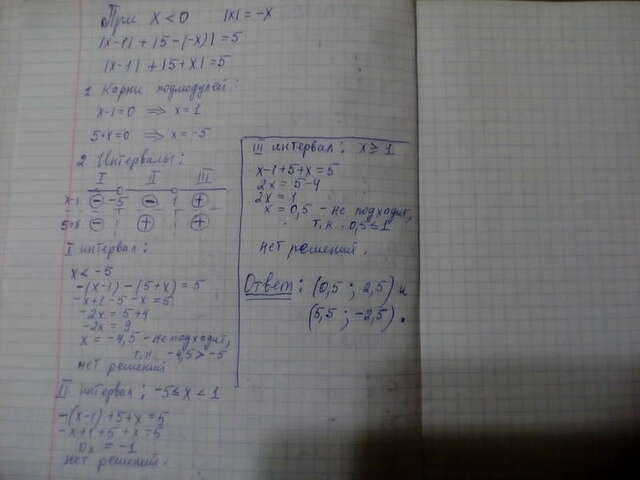 При x < 0 |x| = -x
|x-1| + |5-(-x)| = 5
|x-1| + |5+x| = 5
1. Корни подмодулей:
x-1=0 ⇒ x=1
5+x=0 ⇒ x=-5
2. Интервалы:
I II III
x-1 - -5 - 1 +
5+x - + +
I интервал:
x < -5
-(x-1) - (5+x) = 5
-x+1-5-x=5
-2x = 5+4
-2x = 9
x = -4,5 - не подходит,
т.к. -4,5 > -5
нет решений
II интервал: -5 ≤ x < 1
-(x-1)+5+x=5
-x+1+5+x=5
0x = -1
нет решений.
III интервал: x ≥ 1
x-1+5+x=5
2x = 5-4
2x = 1
x = 0,5 - не подходит,
т.к. 0,5 ≤ 1
нет решений.
Ответ: (0,5 ; 2,5) и
(5,5 ; -2,5).